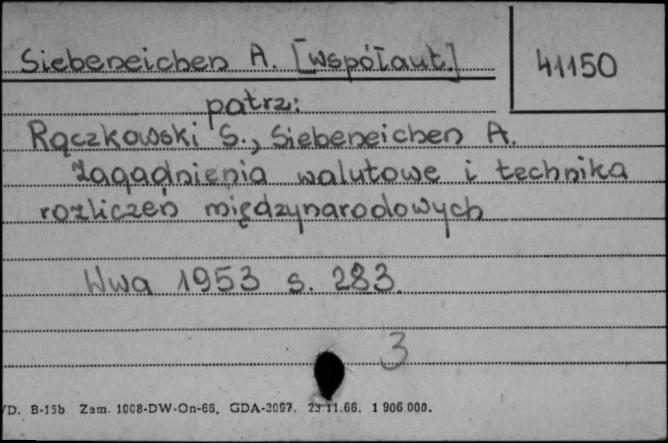 Siebeneichen A. [współaut.]
41150
patrz:
Rączkowski S., Siebeneichen A.
Zagadnienia walutowe i technika
rozliczeń międzynarodowych
Wwa 1953 s. 283.
3
VD. B-15b Zam. 1008-DW-On-66. GDA-3097. 23.11.66. 1 906 000.